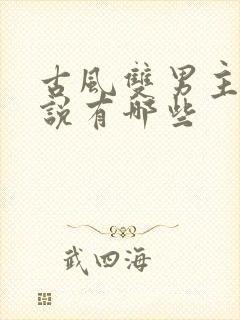 古風雙男主
說有哪些
武四海